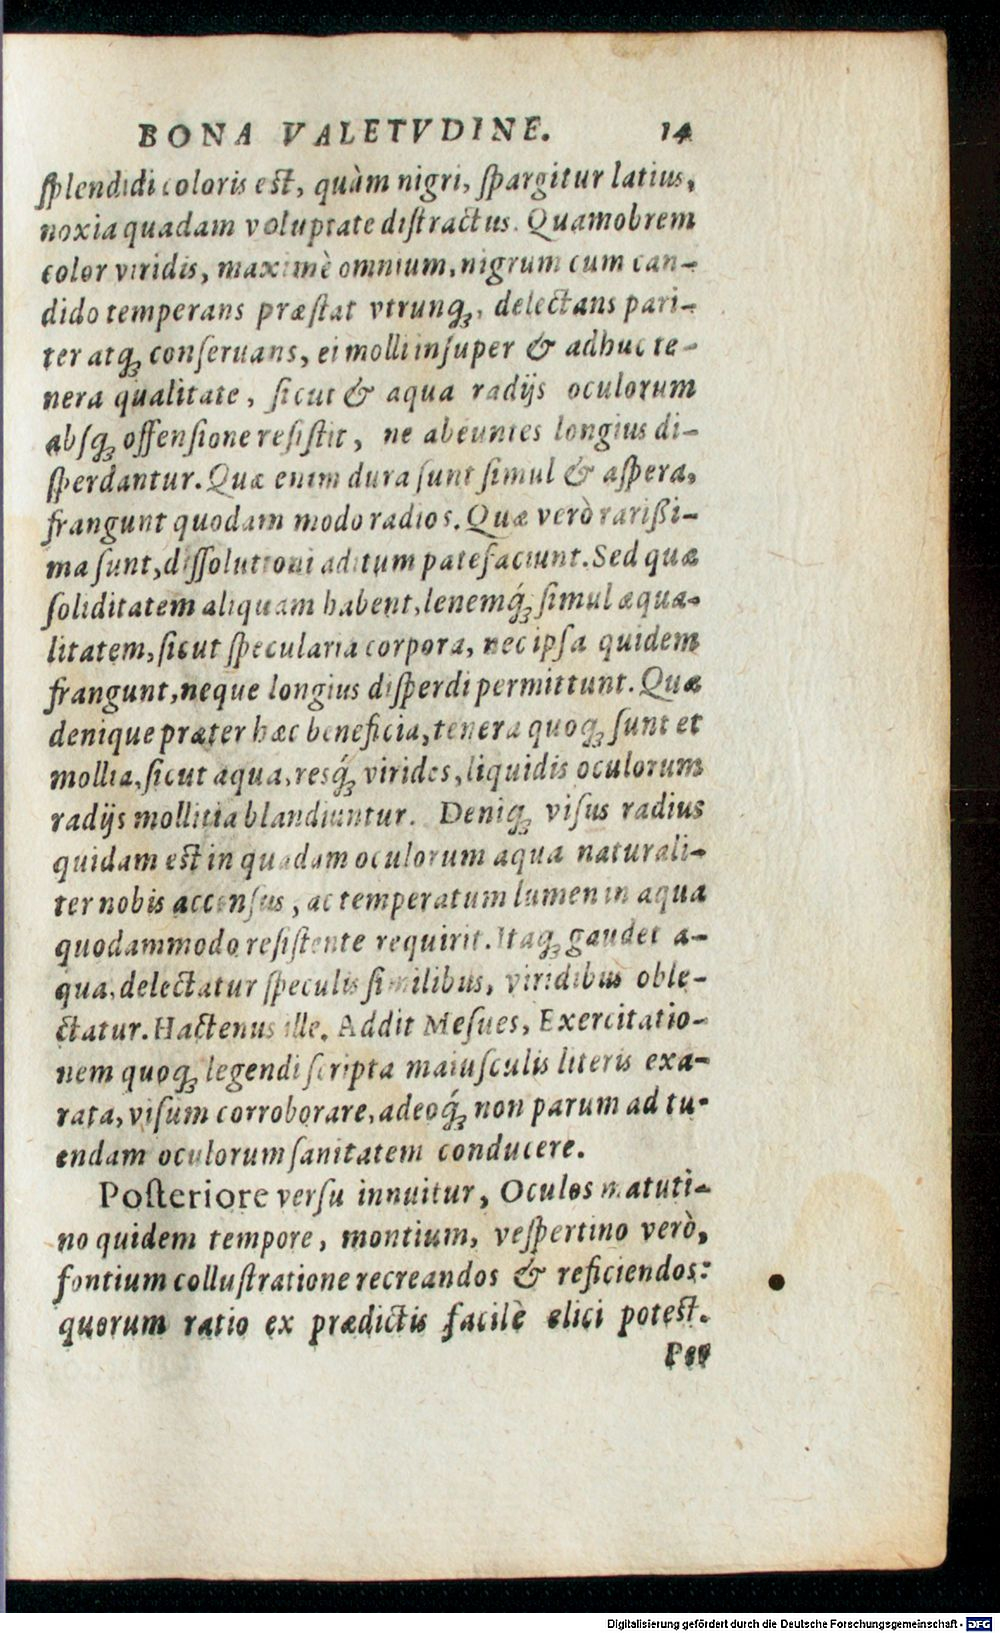 BONA VALETVDINE. 14
ſplendidi coloris eſt, quàm nigri, ſpargitur latius,
noxia quadam voluptate diſtractus. Quamobrem
color viridis, maximè omnium, nigrum cum can-
dido temperans præſtat vtrunq;, delectans pari-
ter atq; conſeruans, ei molli inſuper & adhuc te-
nera qualitate, ſicut & aqua radijs oculorum
abſq; offenſione reſiſtit, ne abeuntes longius di-
ſperdantur. Quæ enim dura ſunt ſimul & aſpera,
frangunt quodam modo radios. Quæ verò rarißi-
ma ſunt, diſſolutioni aditum patefaciunt. Sed quæ
ſoliditatem aliquam habent, lenemq́; ſimul æqua-
litatem, ſicut ſpecularia corpora, nec ipſa quidem
frangunt, neque longius diſperdi permittunt. Quæ
denique præter hæc beneficia, tenera quoq; ſunt et
mollia, ſicut aqua, resq́; virides, liquidis oculorum
radijs mollitia blandiuntur. Deniq; viſus radius
quidam eſt in quadam oculorum aqua naturali-
ter nobis accenſus, ac temperatum lumen in aqua
quodammodo reſiſtente requirit. Itaq; gaudet a-
qua, delectatur ſpeculis ſimilibus, viridibus oble-
ctatur. Hactenus ille. Addit Meſues, Exercitatio-
nem quoq; legendi ſcripta maiuſculis literis exa-
rata, viſum corroborare, adeoq́; non parum ad tu-
endam oculorum ſanitatem conducere.
Poſteriore verſu innuitur, Oculos matuti-
no quidem tempore, montium, veſpertino verò,
fontium colluſtratione recreandos & reficiendos:
quorum ratio ex prædictis facilè elici poteſt.
Per
Digitalisierung gefördert durch die Deutsche Forschungsgemeinschaft - DFG